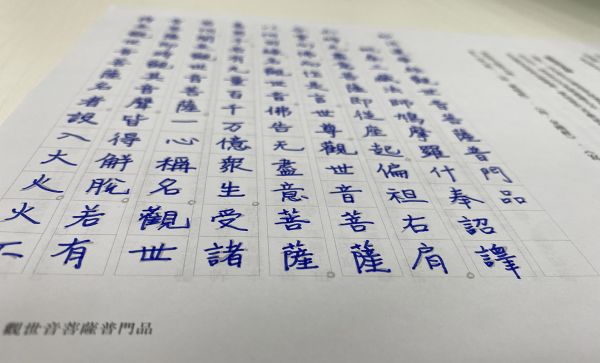 觀世音菩薩普門品
三藏法師鳩摩羅什奉詔譯
意菩薩即從座起偏袒右肩
向佛而作是言世尊觀世音菩薩
以何因緣名觀世音佛告无盡意菩薩
有无量百千万億衆生受諸
聞是觀世音菩薩一心稱名觀世
即時觀其音聲皆得解脫若有
持是觀世音菩薩名者設入大火火不
觀世音菩薩普門品